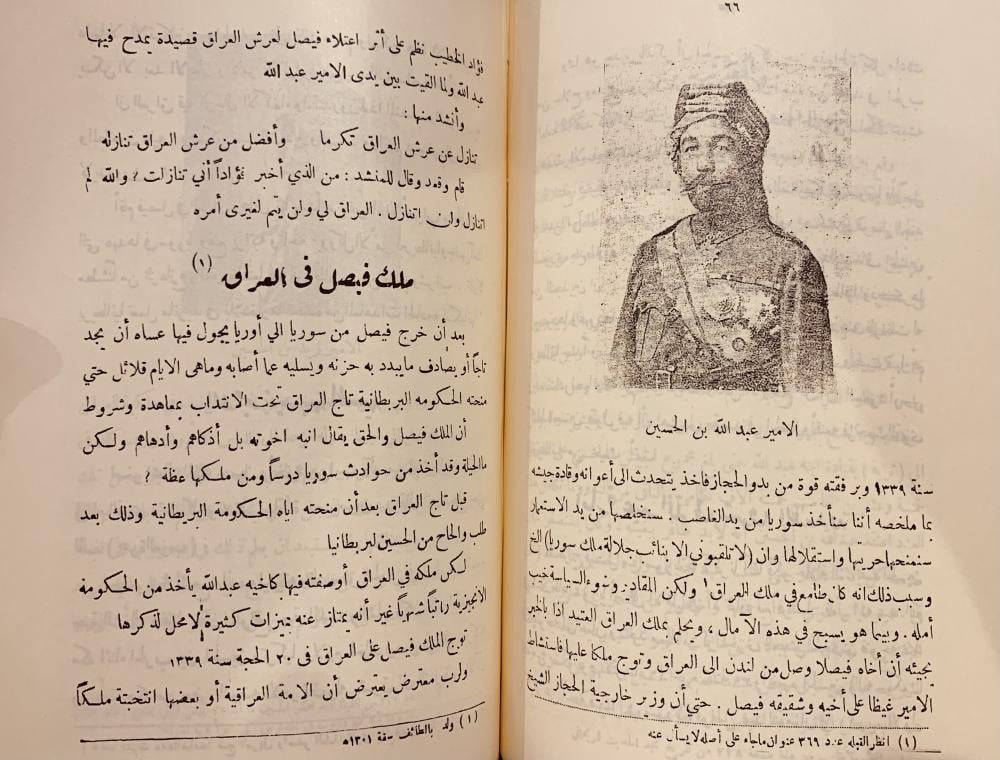 ٦٦
الامير عبد الله بن الحسين
سنة ١٣٣٩ وبرفقته قوة من بدو الحجاز فاخذ يتحدث الى أعوانه وقادة جيشه
بما ملخصه أننا سنأخذ سوريا من يد الغاصب . سنخلصها من يد الاستعمار
سنمنحها حريتها واستقلالها وان (لا تلقبوني الا بنائب جلالة ملك سوريا) الخ
وسبب ذلك انه كان طامع في ملك العراق ولكن المقادير ونوء السياسة خيب
أمله . وبينما هو يسبح في هذه الآمال ، ويحلم بملك العراق العتيد اذا بالخبر
يجيئه أن أخاه فيصلا وصل من لندن الى العراق وتوج ملكا عليها فاستشاط
الامير غيظا على أخيه وشقيقه فيصل . حتي أن وزير خارجية الحجاز الشيخ
(١) انظر القبله عدد ٣٦٩ عنوان ماجاء على أصله لا يسأل عنه
فؤاد الخطيب نظم على أثر اعتلاء فيصل لعرش العراق قصيدة يمدح فيها
عبد الله ولما القيت بين يدى الامير عبد الله
وأنشد منها :
تنازل عن عرش العراق تكرما وأفضل من عرش العراق تنازله
قام وقعد وقال للمنشد : من الذي أخبر فؤاداً أني تنازلت ؟ والله لم
اتنازل ولن اتنازل . العراق لي ولن يتم لغيرى أمره
ملك فيصل فى العراق (١)
بعد أن خرج فيصل من سوريا الي أوربا يجول فيها عساه أن يجد
تاجاً أو يصادف مايبدد به حزنه ويسليه عما أصابه وماهى الايام قلائل حتي
منحته الحكومه البريطانية تاج العراق تحت الانتداب بمعاهدة وشروط
أن الملك فيصل والحق يقال انبه اخوته بل أذكاهم وأدهاهم ولكن
ما الحيلة وقد أخذ من حوادث سوريا درساً ومن ملكها عظة ؟
قبل تاج العراق بعد أن منحته اياه الحكومة البريطانية وذلك بعد
طلب والحاح من الحسين لبريطانيا
لكن ملكه في العراق أو صفته فيها كاخيه عبد الله يأخذ من الحكومه
الانجليزية راتباً شهرياً غير أنه يمتاز عنه بميزات كثيرة لا محل لذكرها
توج الملك فيصل على العراق فى ٢٠ الحجة سنة ١٣٣٩
ولرب معترض يعترض أن الامة العراقية أو بعضها انتخبتة ملكاً
(١) ولد بالطائف سنة ١٣٠١ه